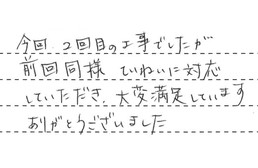 今回 2回目の工事でしたが
前回同様 ていねいに対応
していただき、大変満足しています
ありがとうございました